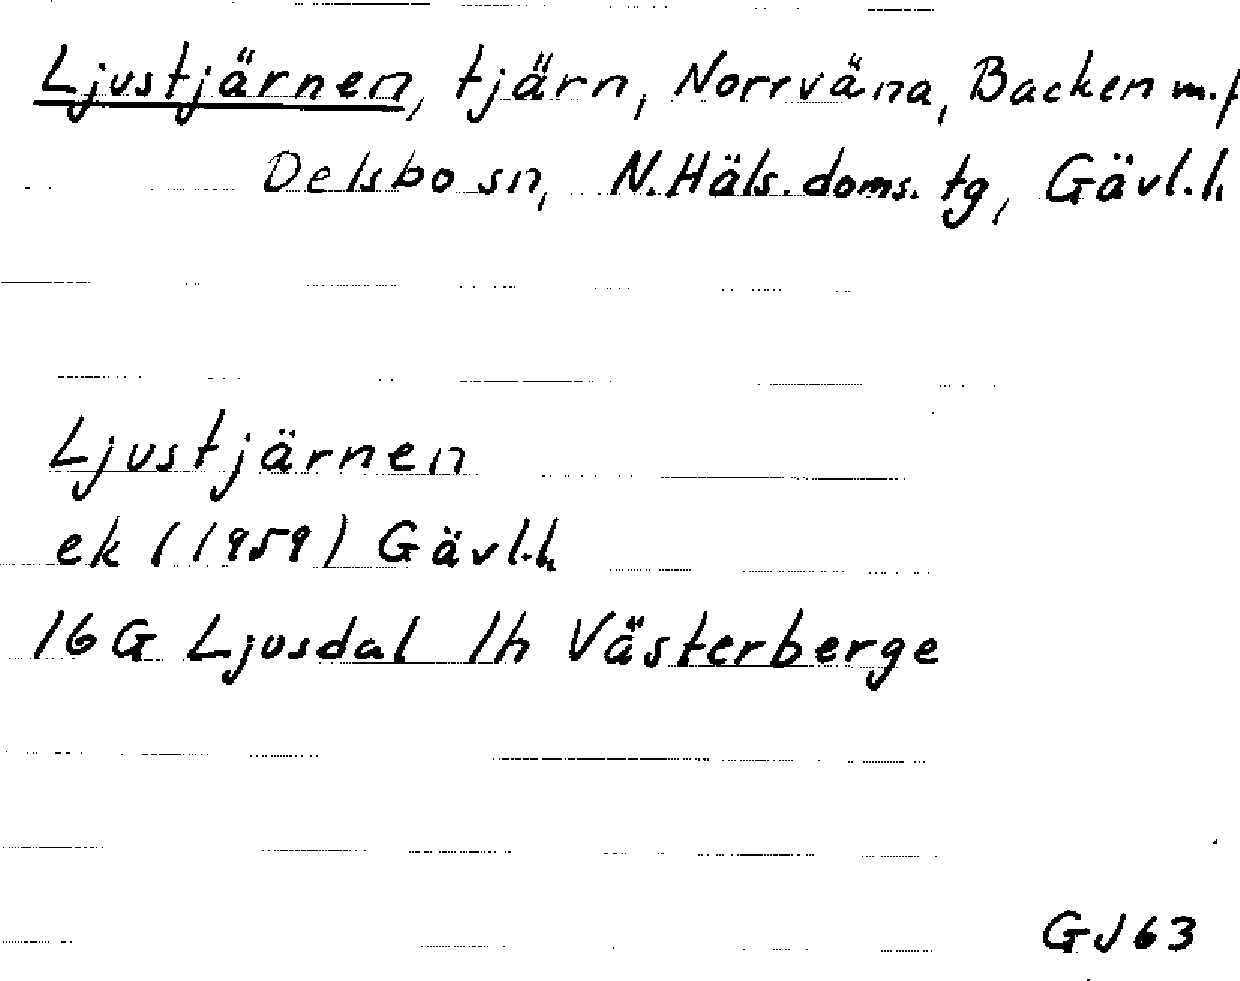 Ljustjärnen, tjärn, Norrväna, Backen m.fl
Delsbo sn, N.Häls.doms.tg, Gävl.l.
Ljustjärnen
ek (1959) Gävl.l.
16G Ljusdal 1h Västerberge
GJ63